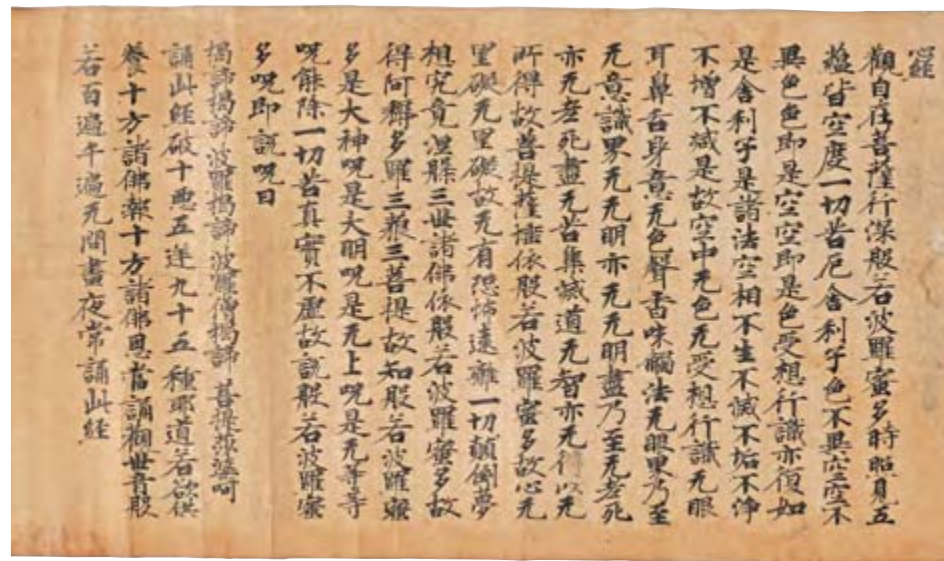 經
觀自在菩薩行深般若波羅蜜多時照見五
蘊皆空度一切苦厄舍利子色不異空空不
異色色即是空空即是色受想行識亦復如
是舍利子是諸法空相不生不滅不垢不淨
不增不減是故空中无色无受想行識无眼
耳鼻舌身意无色聲香味觸法无眼界乃至
无意識界无无明亦无无明盡乃至无老死
亦无老死盡无苦集滅道无智亦无得以无
所得故菩提薩埵依般若波羅蜜多故心无
罣礙无罣礙故无有恐怖遠離一切顛倒夢
想究竟涅槃三世諸佛依般若波羅蜜多故
得阿耨多羅三藐三菩提故知般若波羅蜜
多是大神呪是大明呪是无上呪是无等等
呪能除一切苦真實不虛故說般若波羅蜜
多呪即說呪曰
揭諦揭諦 波羅揭諦 波羅僧揭諦 菩提薩婆訶
誦此經破十惡五逆九十五種耶道若欲供
養十方諸佛報十方諸佛恩當誦觀世音般
若百遍千遍无問晝夜常誦此經